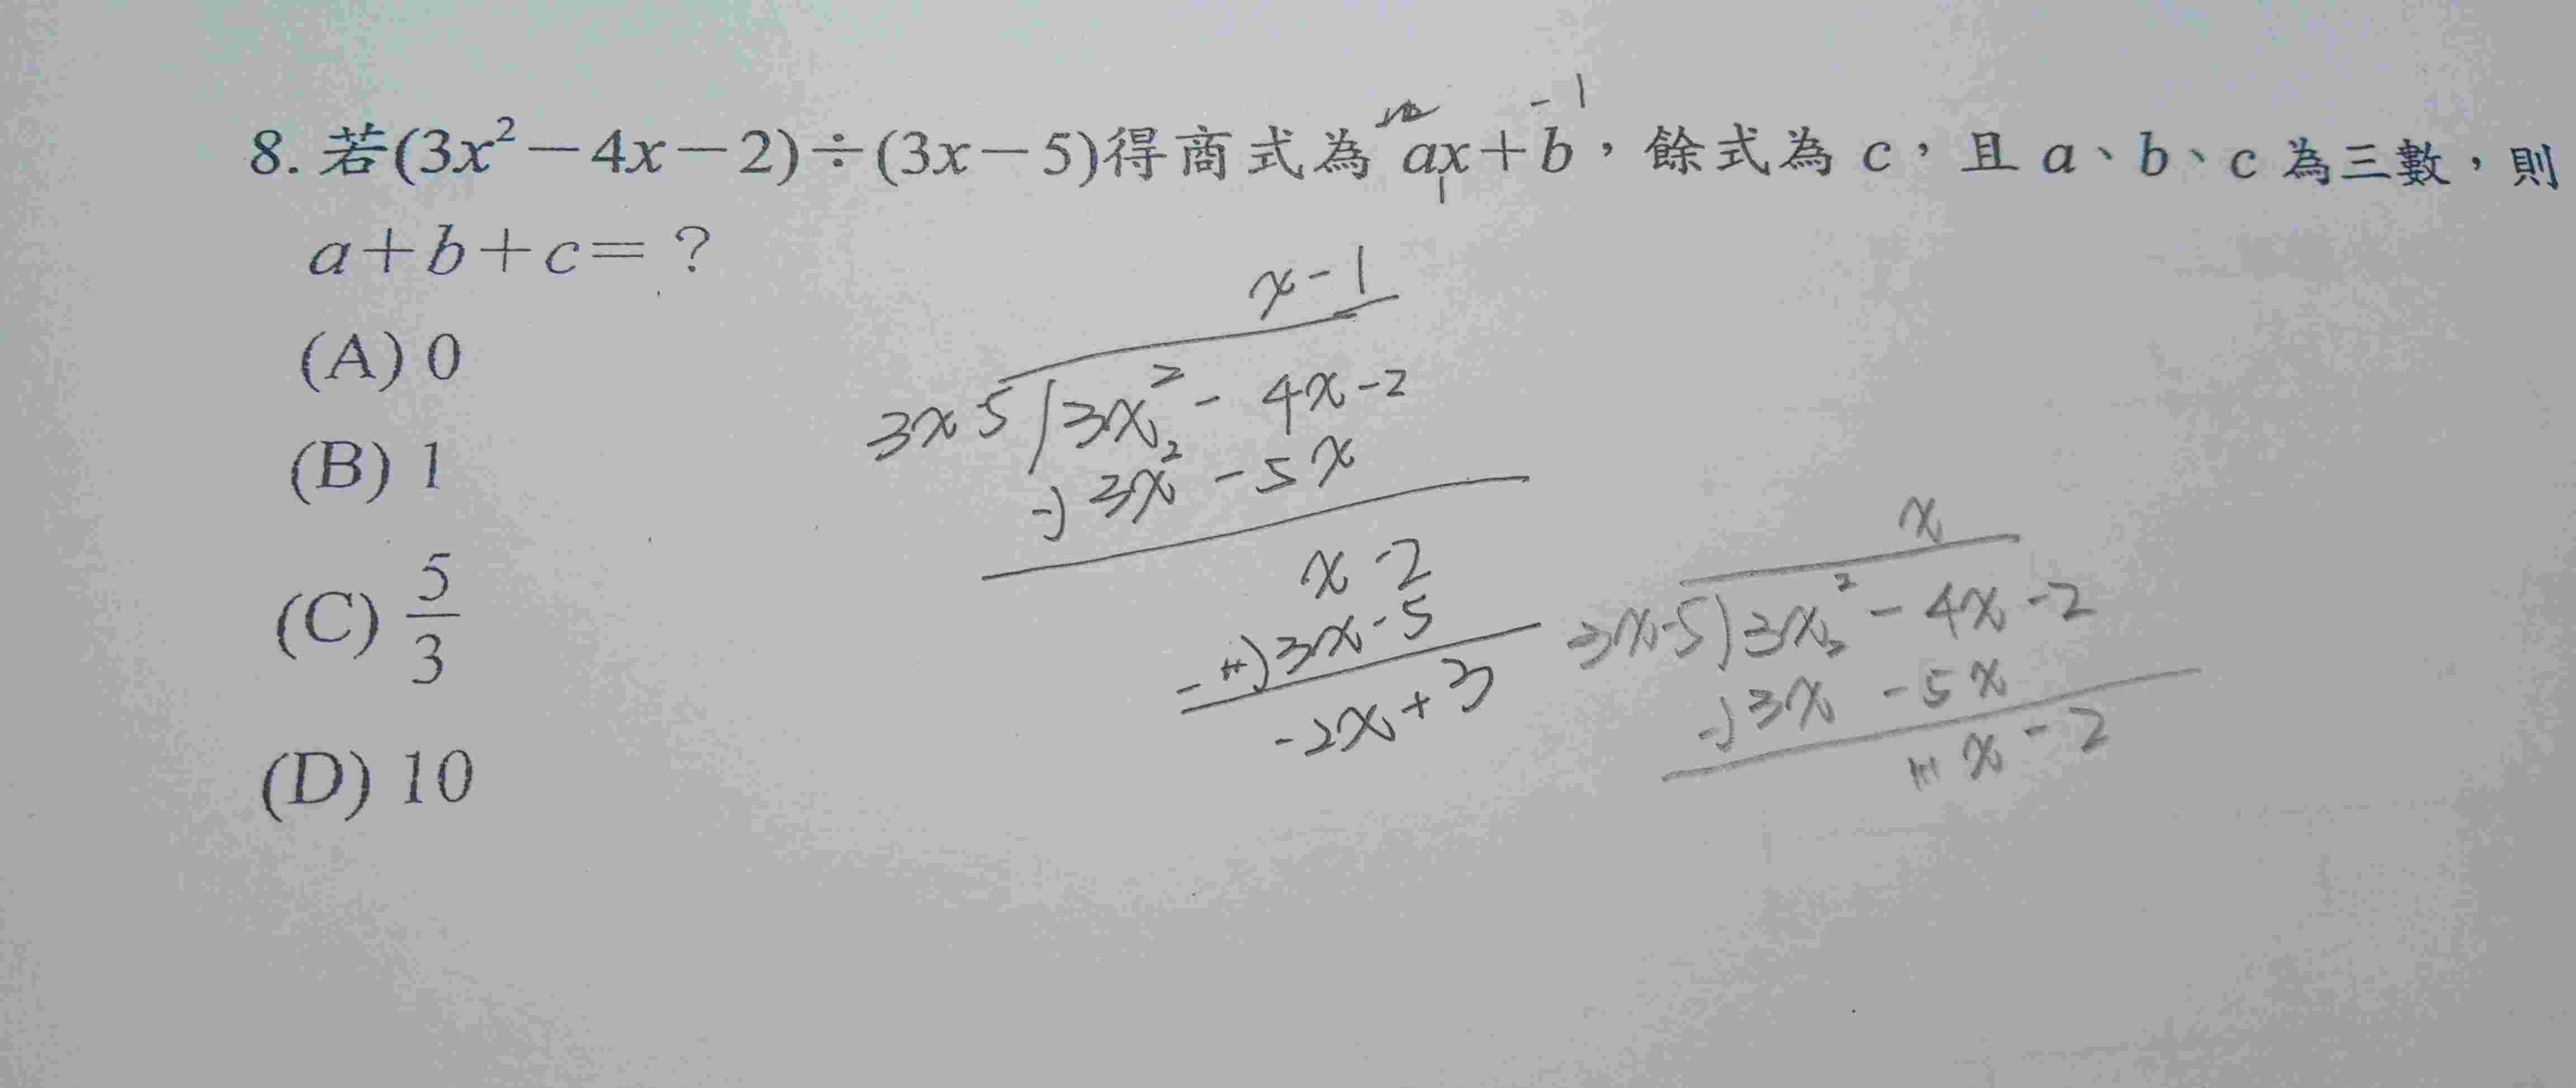 8. 若(3x²－4x－2)÷(3x－5)得商式為 ax＋b，餘式為 c，且 a、b、c 為三數，則
a＋b＋c＝？
(A) 0
(B) 1
(C) 5/3
(D) 10
-1
1
x-1
3x 5 ) 3x² - 4x-2
-) 3x² -5x
x -2
3x-5
-2x+3
x
3x-5) 3x² - 4x -2
-) 3x -5x
x -2